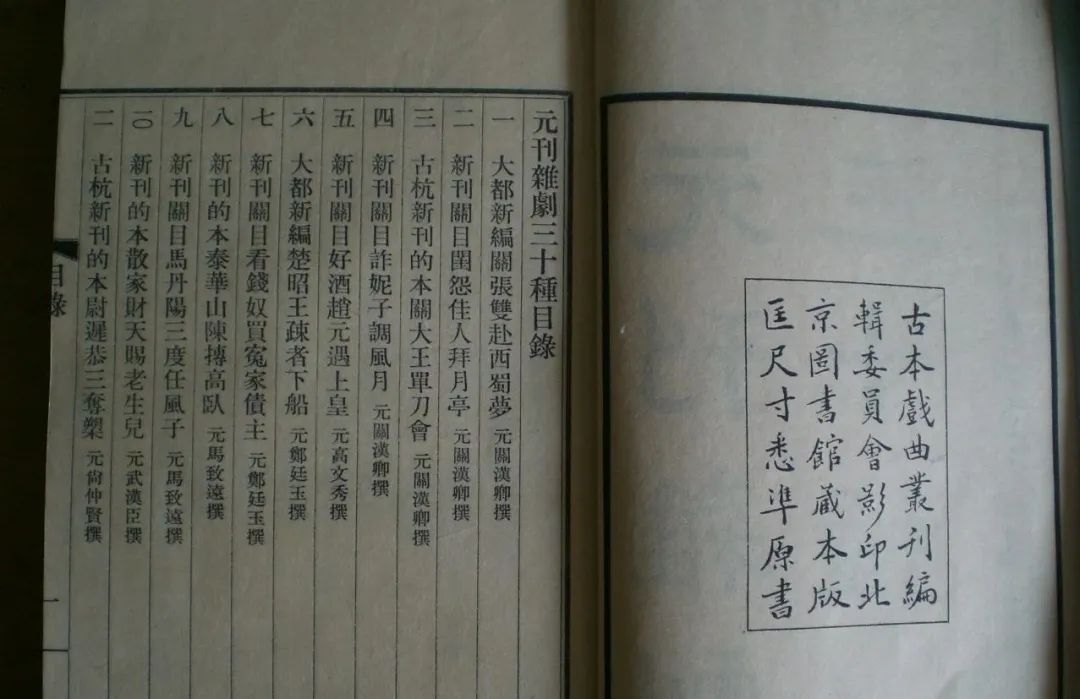 古本戲曲叢刊編
輯委員會影印北
京圖書館藏本版
匡尺寸悉準原書
元刊雜劇三十種目錄
一 大都新編關張雙赴西蜀夢 元關漢卿撰
二 新刊關目閨怨佳人拜月亭 元關漢卿撰
三 古杭新刊的本關大王單刀會 元關漢卿撰
四 新刊關目詐妮子調風月 元關漢卿撰
五 新刊關目好酒趙元遇上皇 元高文秀撰
六 大都新編楚昭王疎者下船 元鄭廷玉撰
七 新刊關目看錢奴買冤家債主 元鄭廷玉撰
八 新刊的本泰華山陳摶高臥 元馬致遠撰
九 新刊關目馬丹陽三度任風子 元馬致遠撰
一〇 新刊的本散家財天賜老生兒 元武漢臣撰
一一 古杭新刊的本尉遲恭三奪槊 元尙仲賢撰
目錄
一